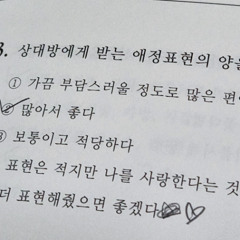 3. 상대방에게 받는 애정표현의 양을
① 가끔 부담스러울 정도로 많은 편
② 많아서 좋다
③ 보통이고 적당하다
표현은 적지만 나를 사랑한다는 것
더 표현해줬으면 좋겠다